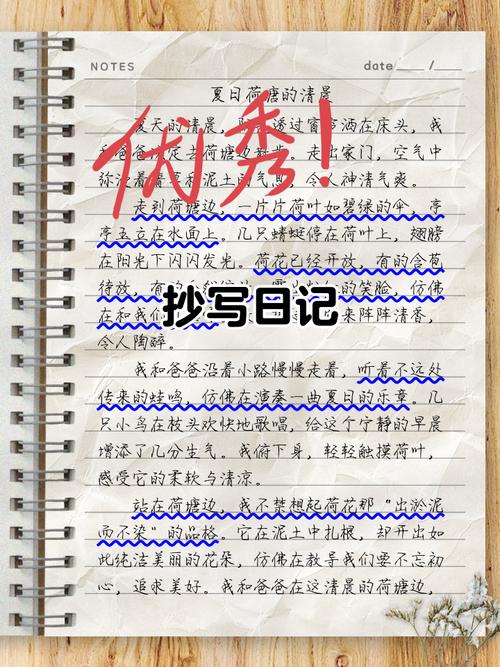 NOTES date ____ / ____
夏日荷塘的清晨
夏天的清晨，阳光透过窗帘洒在床头，我
和爸爸决定去荷塘边散步。走出家门，空气中
弥漫着青草和泥土的气息，令人神清气爽。
走到荷塘边，一片片荷叶如碧绿的伞，亭
亭玉立在水面上。几只蜻蜓停在荷叶上，翅膀
在阳光下闪闪发光。荷花已经开放，有的含苞
待放，有的 的笑脸，仿佛
在和我们 来阵阵清香，
令人陶醉。
我和爸爸沿着小路慢慢走着，听着不远处
传来的蛙鸣，仿佛在演奏一曲夏日的乐章。几
只小鸟在枝头欢快地歌唱，给这个宁静的早晨
增添了几分生气。我俯下身，轻轻触摸荷叶，
感受它的柔软与清凉。
站在荷塘边，我不禁想起荷花那“出淤泥
而不染”的品格。它在泥土中扎根，却开出如
此纯洁美丽的花朵，仿佛在教导我们要不忘初
心，追求美好。我和爸爸在这清晨的荷塘边，
优秀！
抄写日记